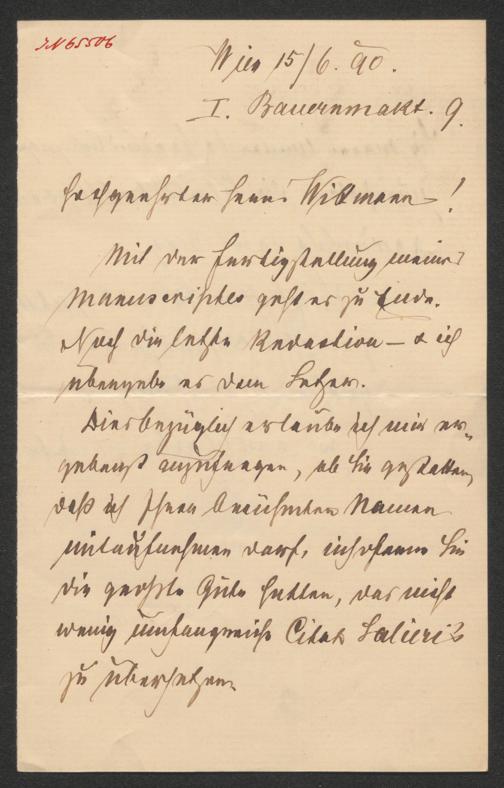 IN 65506
Wien 15/6. 90.
I. Bauernmarkt. 9.
Hochgeehrter Herr Wittmann!
Mit der Fertigstellung meines
Manuscriptes geht es zu Ende.
Noch die letzte Redaction – & ich
übergebe es dem Setzer.
Diesbezüglich erlaube ich mir er-
gebenst anzufragen, ob Sie gestatten,
daß ich Ihren berühmten Namen
mitaufnehmen darf, insoferne Sie
die große Güte hatten, das nicht
wenig umfangreiche Citat Salieri's
zu übersetzen.